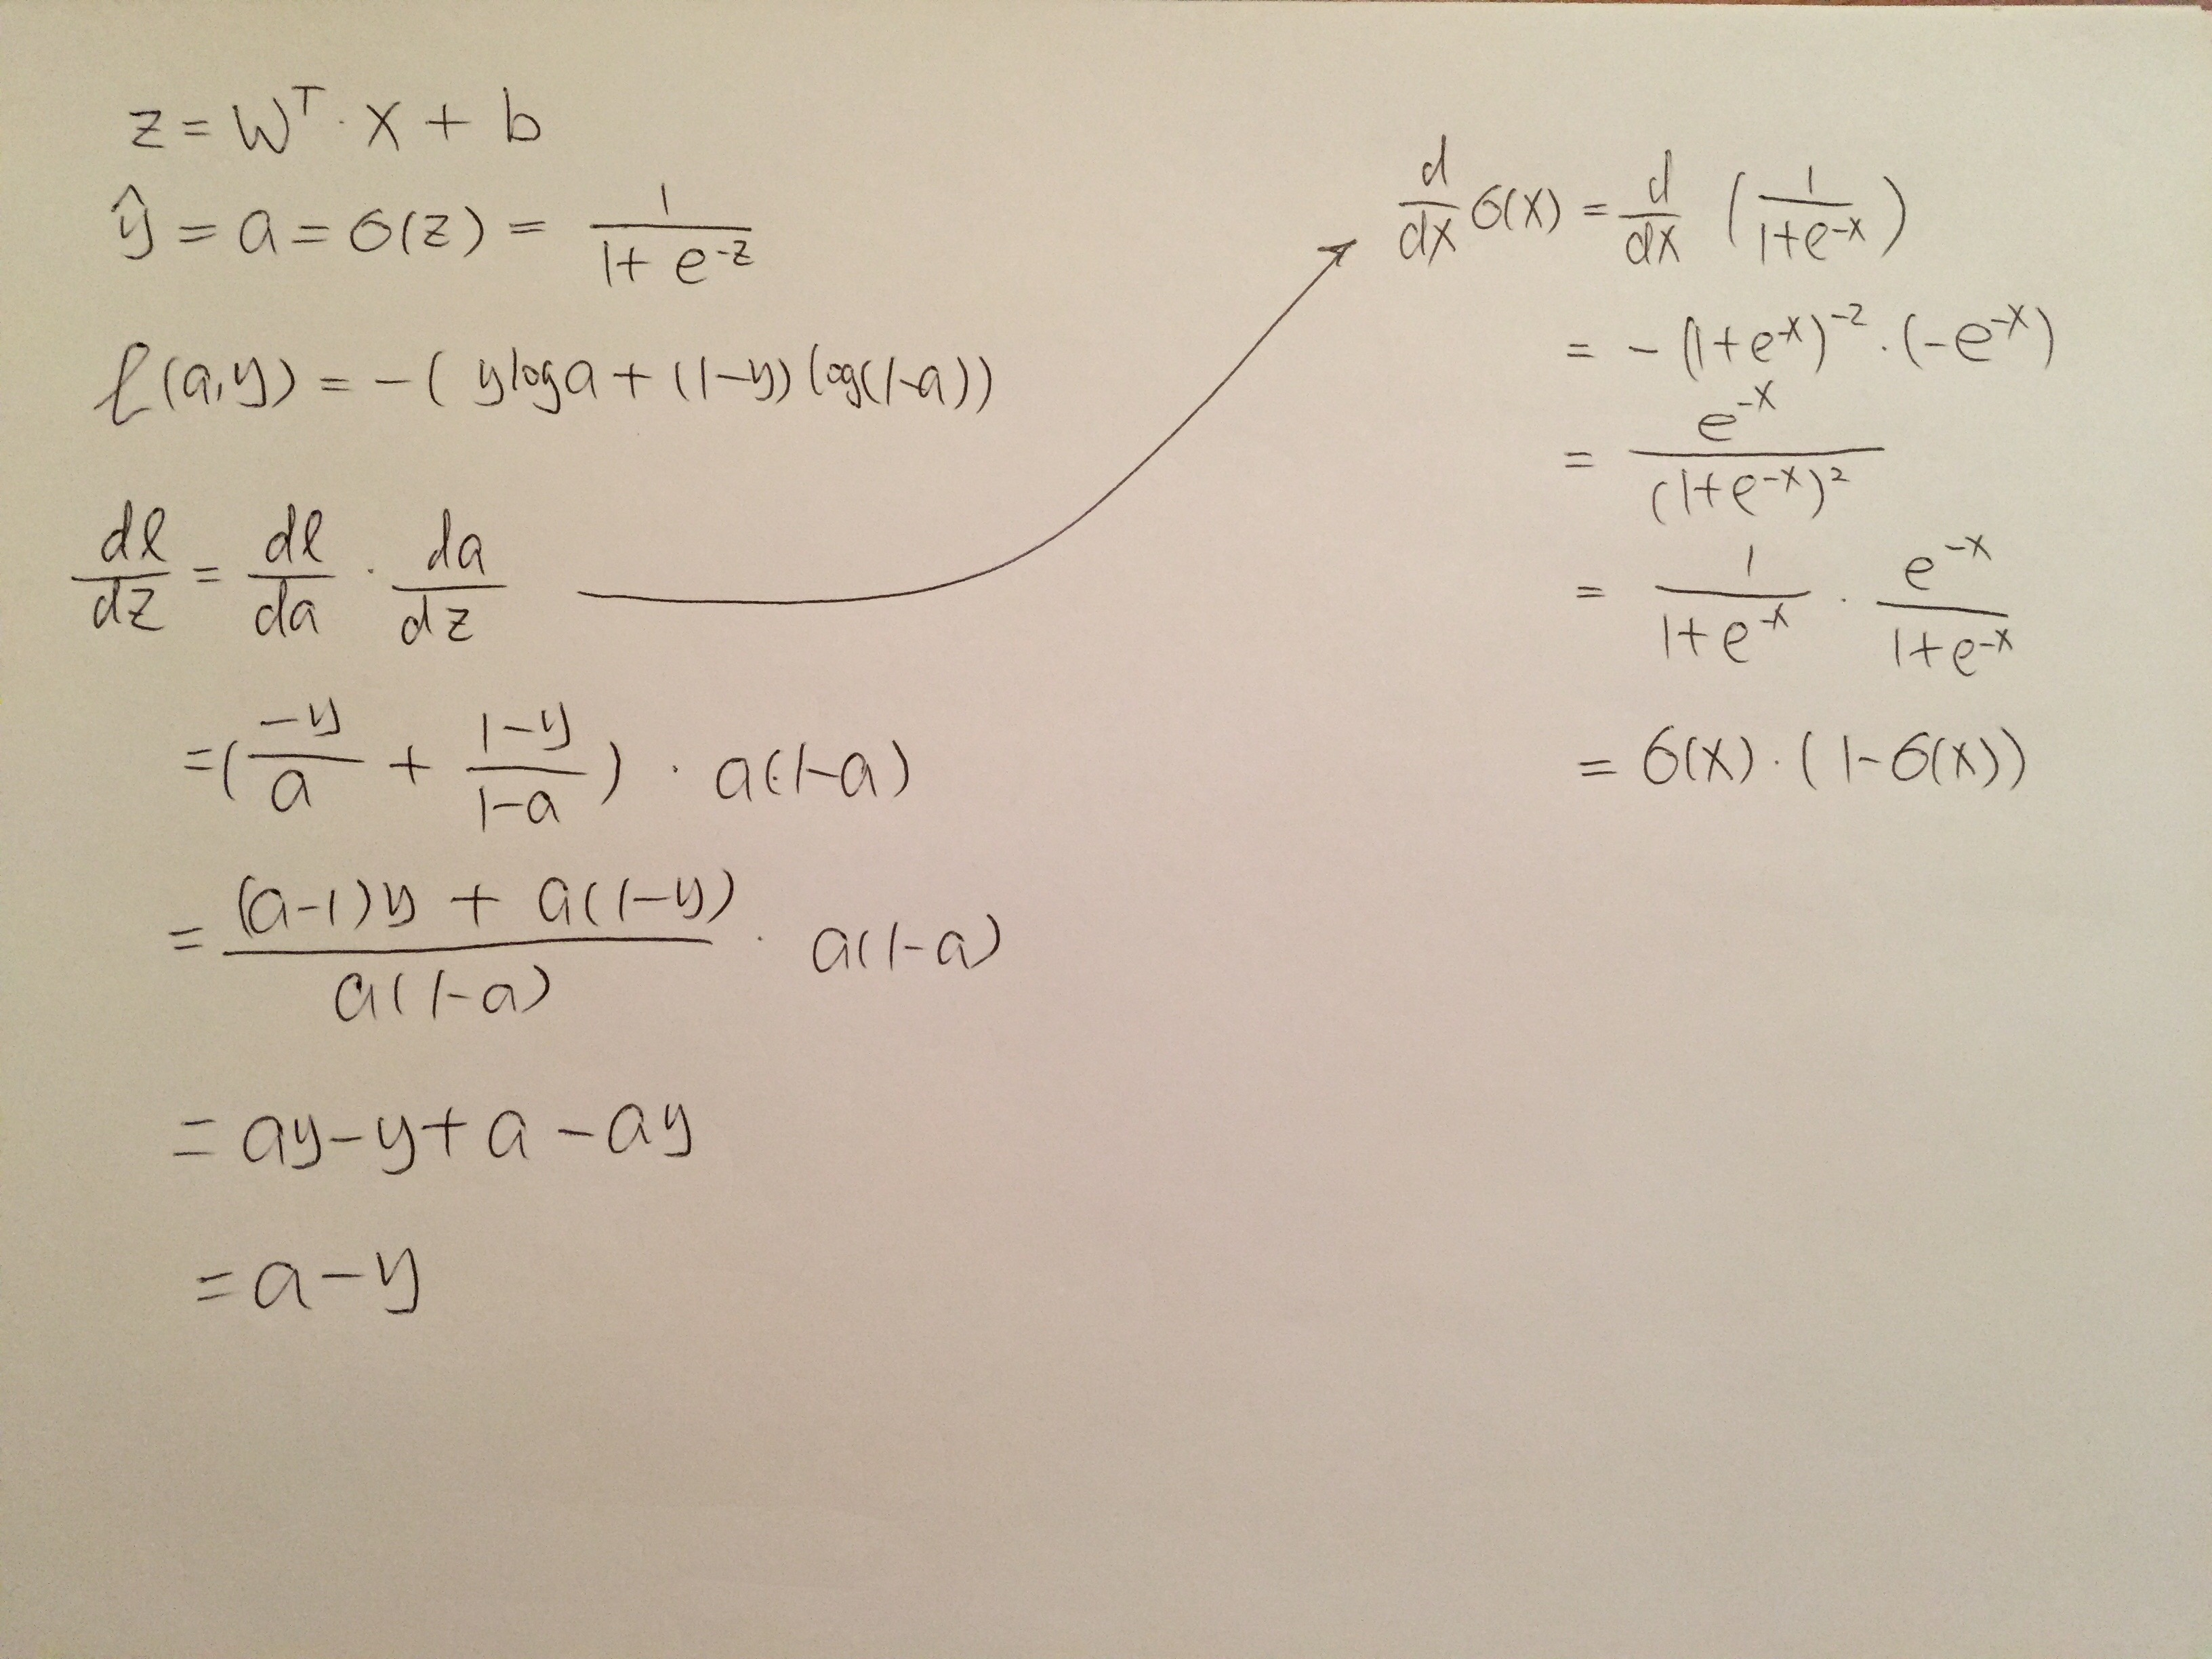 z = W^T · x + b
ŷ = a = σ(z) = 1/(1 + e^{-z})
ℓ(a,y) = -( y log a + (1-y) log(1-a))
dℓ/dz = dℓ/da · da/dz
= (-y/a + (1-y)/(1-a)) · a(1-a)
= ((a-1)y + a(1-y))/(a(1-a)) · a(1-a)
= ay - y + a - ay
= a - y
d/dx σ(x) = d/dx (1/(1+e^{-x}))
= - (1+e^{-x})^{-2} · (-e^{-x})
= e^{-x}/(1+e^{-x})^2
= 1/(1+e^{-x}) · e^{-x}/(1+e^{-x})
= σ(x) · (1-σ(x))